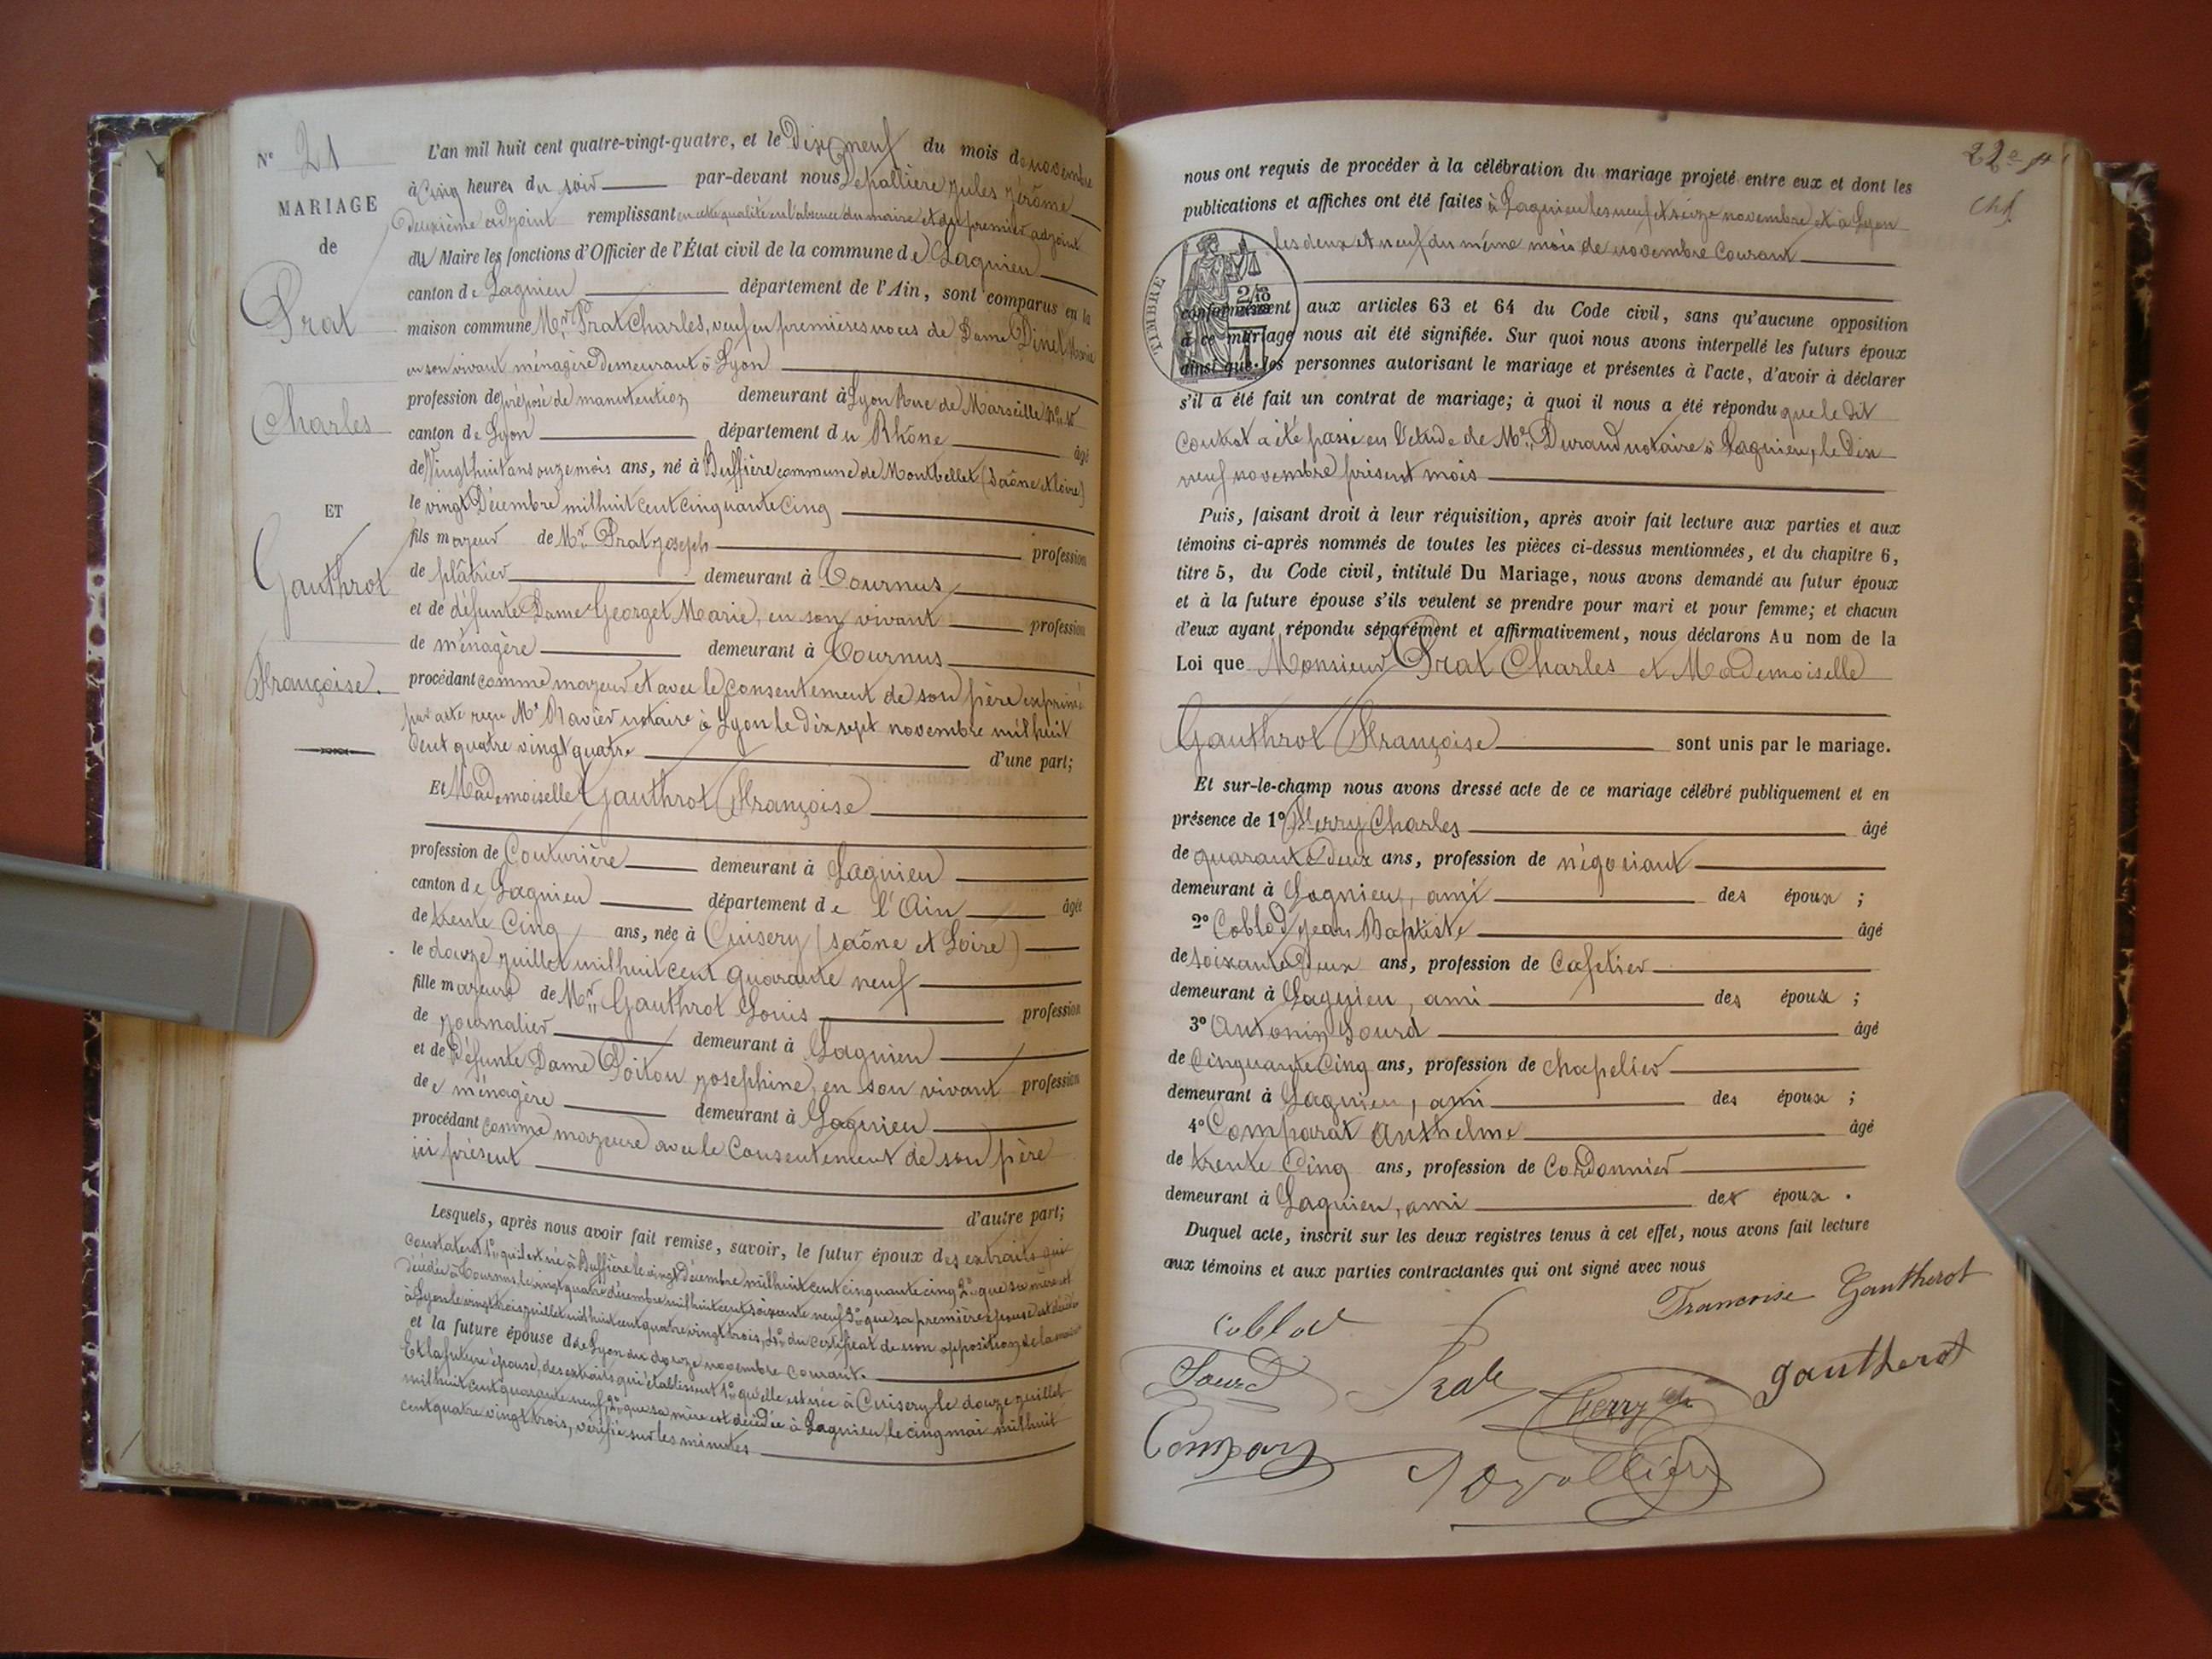 N° 21
MARIAGE
de
Prat
Charles
ET
Gauthrot
Françoise.
L'an mil huit cent quatre-vingt-quatre, et le Dix neuf du mois de novembre
à Cinq heures du soir par-devant nous Depallière Jules Jérôme
Deuxième adjoint remplissant en cette qualité en l'absence du maire et du premier adjoint
du Maire les fonctions d'Officier de l'État civil de la commune de Lagnieu
canton de Lagnieu département de l'Ain, sont comparus en la
maison commune Mr Prat Charles, veuf en premières noces de Dame Dinet Marie
en son vivant ménagère demeurant à Lyon
profession de préposé de manutention demeurant à Lyon Rue de Marseille No
canton de Lyon département du Rhône âgé
de Vingt huit ans onze mois ans, né à Buffière commune de Montbellet (Saône et Loire)
le vingt Décembre mil huit cent cinquante Cinq
fils majeur de Mr Prat Joseph profession
de plâtrier demeurant à Tournus
et de défunte Dame Georget Marie, en son vivant profession
de ménagère demeurant à Tournus
procédant comme majeur et avec le consentement de son père exprimé
par acte reçu Me Ravier notaire à Lyon le dix sept novembre mil huit
Cent quatre vingt quatre d'une part;
Et Mademoiselle Gauthrot Françoise
profession de Couturière demeurant à Lagnieu
canton de Lagnieu département de l'Ain âgée
de trente Cinq ans, née à Cuisery (Saône et Loire)
le douze juillet mil huit cent quarante neuf
fille majeure de Mr Gauthrot Louis profession
de journalier demeurant à Lagnieu
et de Défunte Dame Poitou Josephine, en son vivant profession
de ménagère demeurant à Lagnieu
procédant comme majeure avec le Consentement de son père
ici présent
d'autre part;
Lesquels, après nous avoir fait remise, savoir, le futur époux des extraits qui
constatent 1° qu'il est né à Buffière le vingt Décembre mil huit cent cinquante cinq 2° que sa mère est
décédée à Tournus, le vingt quatre décembre mil huit cent soixante neuf 3° que sa première épouse est décédée
à Lyon le vingt trois juillet mil huit cent quatre vingt trois, 4° du certificat de non opposition de la mairie
et la future épouse d de Lyon du douze novembre courant.
Et la future épouse, des extraits qui établissent 1° qu'elle est née à Cuisery le douze juillet
mil huit cent quarante neuf, 2° que sa mère est décédée à Lagnieu, le cinq mai mil huit
cent quatre vingt trois, vérifié sur les minutes
22e
nous ont requis de procéder à la célébration du mariage projeté entre eux et dont les
publications et affiches ont été faites à Lagnieu les neuf et seize novembre et à Lyon
les deux et neuf du même mois de novembre courant
TIMBRE
conformément aux articles 63 et 64 du Code civil, sans qu'aucune opposition
à ce mariage nous ait été signifiée. Sur quoi nous avons interpellé les futurs époux
ainsi que les personnes autorisant le mariage et présentes à l'acte, d'avoir à déclarer
s'il a été fait un contrat de mariage; à quoi il nous a été répondu que le dit
Contrat a été passé en l'étude de Me Durand notaire à Lagnieu, le Dix
neuf novembre présent mois
Puis, faisant droit à leur réquisition, après avoir fait lecture aux parties et aux
témoins ci-après nommés de toutes les pièces ci-dessus mentionnées, et du chapitre 6,
titre 5, du Code civil, intitulé Du Mariage, nous avons demandé au futur époux
et à la future épouse s'ils veulent se prendre pour mari et pour femme; et chacun
d'eux ayant répondu séparément et affirmativement, nous déclarons Au nom de la
Loi que Monsieur Prat Charles et Mademoiselle
Gauthrot Françoise sont unis par le mariage.
Et sur-le-champ nous avons dressé acte de ce mariage célébré publiquement et en
présence de 1° Ferry Charles âgé
de quarante Deux ans, profession de négociant
demeurant à Lagnieu, ami des époux ;
2° Coblod Jean Baptiste âgé
de soixante Deux ans, profession de Cafetier
demeurant à Lagnieu, ami des époux ;
3° Antonin Sourd âgé
de Cinquante Cinq ans, profession de chapelier
demeurant à Lagnieu, ami des époux ;
4° Comparat Anthelme âgé
de trente Cinq ans, profession de Cordonnier
demeurant à Lagnieu, ami des époux .
Duquel acte, inscrit sur les deux registres tenus à cet effet, nous avons fait lecture
aux témoins et aux parties contractantes qui ont signé avec nous
Francoise Gautherot
Coblod
Sourd Prat Ferry gautherot